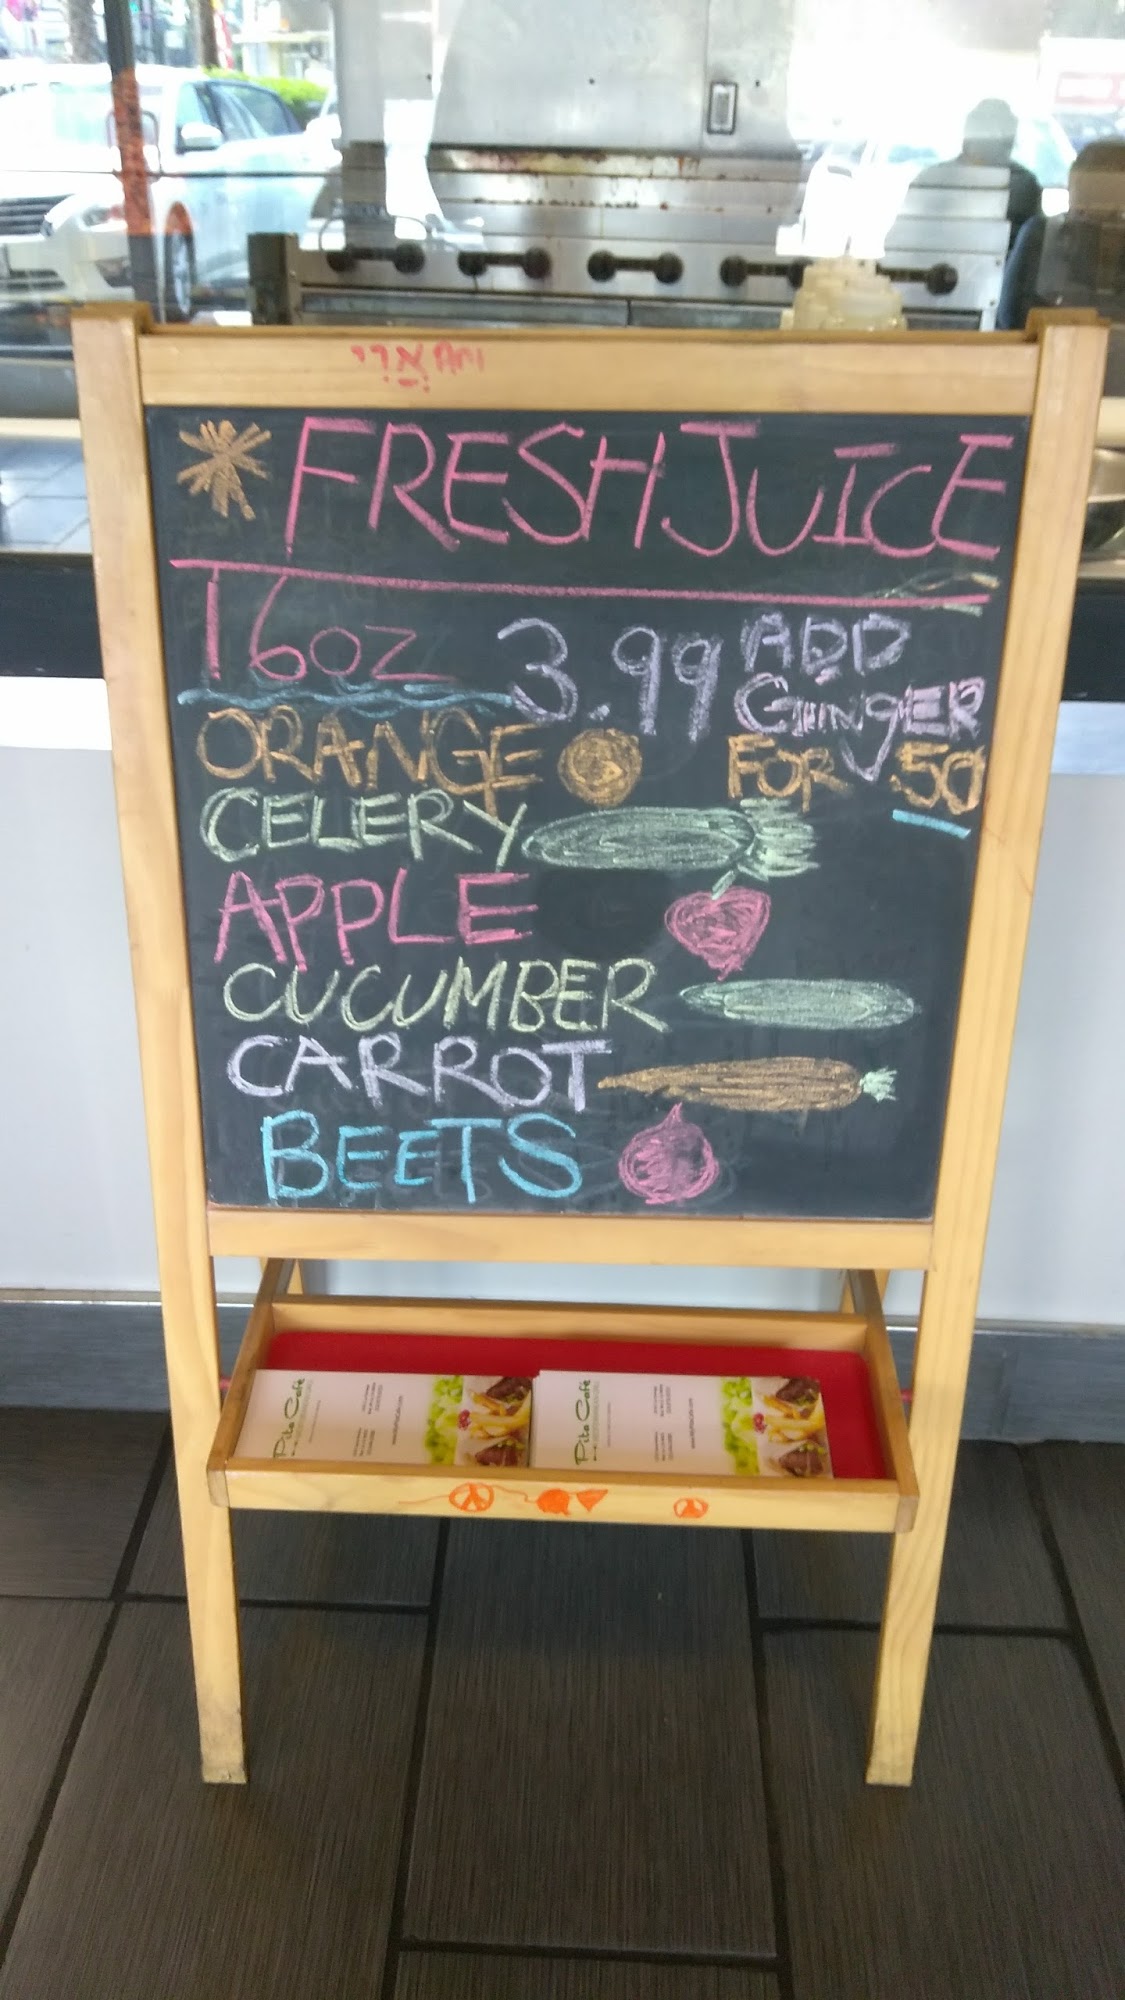 אֲרִי ARI
FRESH JUICE
16oz 3.99 ADD
GINGER
ORANGE FOR .50
CELERY
APPLE
CUCUMBER
CARROT
BEETS
Pita Café
Pita Café